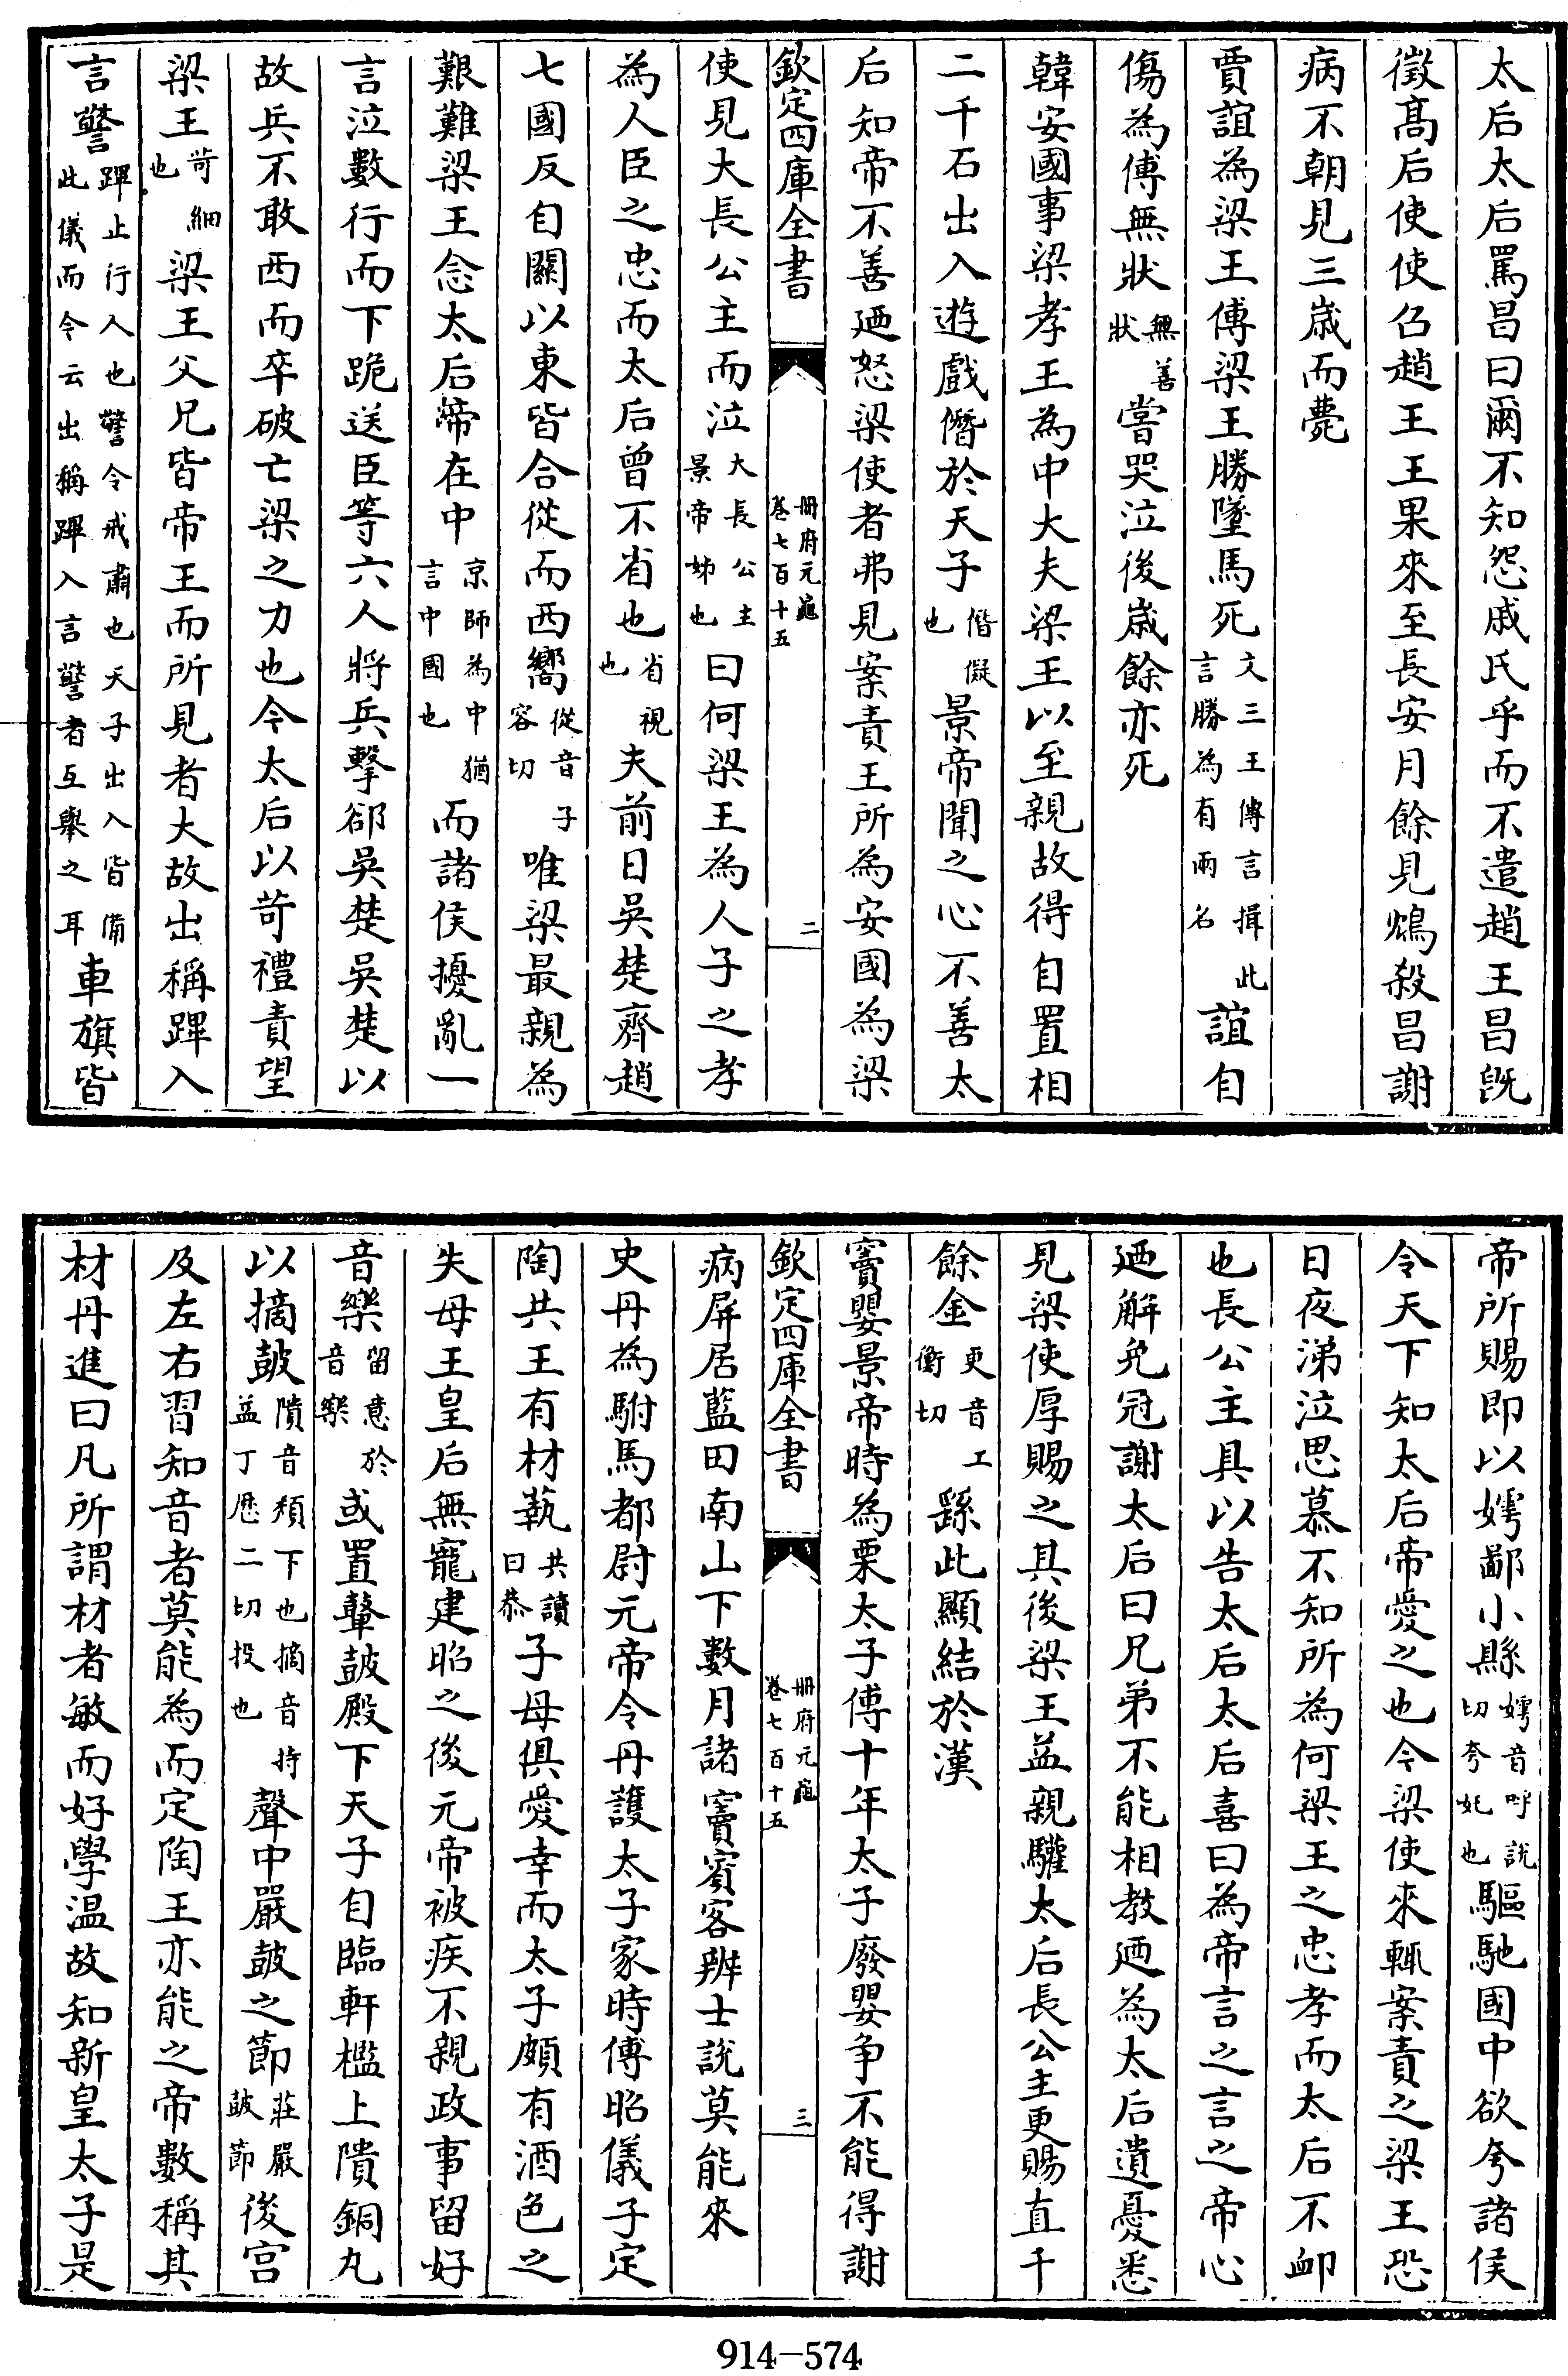 太后太后罵昌曰爾不知怨戚氏乎而不遣趙王昌既
徵高后使使召趙王王果來至長安月餘見鴆殺昌謝
病不朝見三歲而薨
賈誼為梁王傅梁王勝墜馬死文三王傳言揖此言勝為有兩名誼自
傷為傅無狀無善狀嘗哭泣後歲餘亦死
韓安國事梁孝王為中大夫梁王以至親故得自置相
二千石出入遊戲僭於天子僭儗也景帝聞之心不善太
后知帝不善廼怒梁使者弗見案責王所為安國為梁
欽定四庫全書 册府元龜卷七百十五 二
使見大長公主而泣大長公主景帝姊也曰何梁王為人子之孝
為人臣之忠而太后曾不省也省視也夫前日吳楚齊趙
七國反自關以東皆合從而西嚮從音子容切唯梁最親為
艱難梁王念太后帝在中京師為中猶言中國也而諸侯擾亂一
言泣數行而下跪送臣等六人將兵擊郤吳楚吳楚以
故兵不敢西而卒破亡梁之力也今太后以苛禮責望
梁王苛細也梁王父兄皆帝王而所見者大故出稱蹕入
言警蹕止行人也警令戒肅也天子出入皆備此儀而今云出稱蹕入言警者互舉之耳車旗皆
帝所賜即以嫮鄙小縣嫮音呼說切夸妃也驅馳國中欲夸諸侯
令天下知太后帝愛之也今梁使來輒案責之梁王恐
日夜涕泣思慕不知所為何梁王之忠孝而太后不卹
也長公主具以告太后太后喜曰為帝言之言之帝心
廼解免冠謝太后曰兄弟不能相教廼為太后遺憂悉
見梁使厚賜之其後梁王益親驩太后長公主更賜直千
餘金更音工衡切繇此顯結於漢
竇嬰景帝時為栗太子傅十年太子廢嬰爭不能得謝
欽定四庫全書 册府元龜卷七百十五 三
病屏居藍田南山下數月諸竇賓客辨士說莫能來
史丹為駙馬都尉元帝令丹護太子家時傅昭儀子定
陶共王有材藝共讀曰恭子母俱愛幸而太子頗有酒色之
失母王皇后無寵建昭之後元帝被疾不親政事留好
音樂留意於音樂或置鼙鼓殿下天子自臨軒檻上隤銅丸
以擿鼓隤音頽下也擿音持益丁歴二切投也聲中嚴鼓之節莊嚴鼓節後宮
及左右習知音者莫能為而定陶王亦能之帝數稱其
材丹進曰凡所謂材者敏而好學温故知新皇太子是
914-574